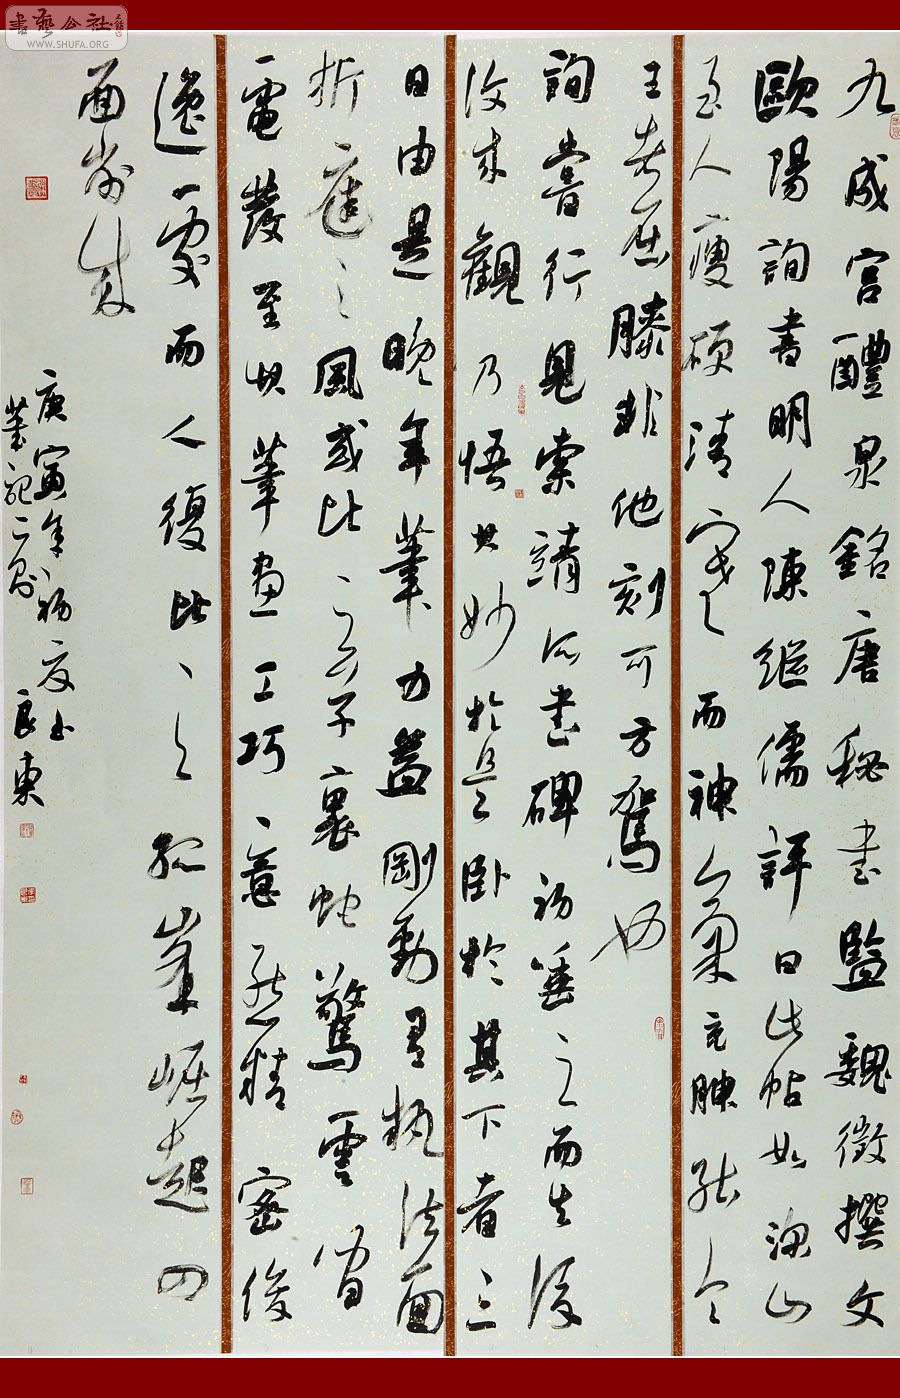 書藝公社
WWW.SHUFA.ORG
九成宮醴泉銘唐秘書監魏徵撰文
歐陽詢書明人陳繼儒評曰此帖如深山
至人瘦硬清寒而神氣充腴能令
王者屈膝非他刻可方駕也
詢嘗行見索靖所書碑初唾之而去後
復來觀乃悟其妙於是臥於其下者三
日由是晚年筆力益剛勁有執法面
折庭之風或比之子裏蛇驚雲間
電發至其筆畫工巧意態精密俊
逸處而人復比之孤峯崛起四
面削成
庚寅年初夏書
筆記二則良東